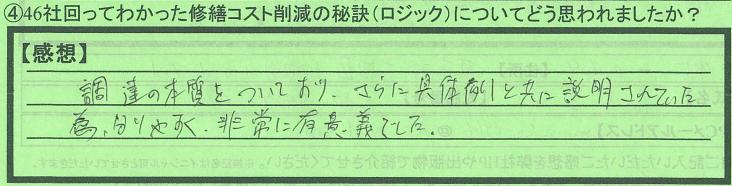 ④46社回ってわかった修繕コスト削減の秘訣（ロジック）についてどう思われましたか？
【感想】
調達の本質をついており、さらに具体例と共に説明されていた
為、分りやすく、非常に有意義でした。